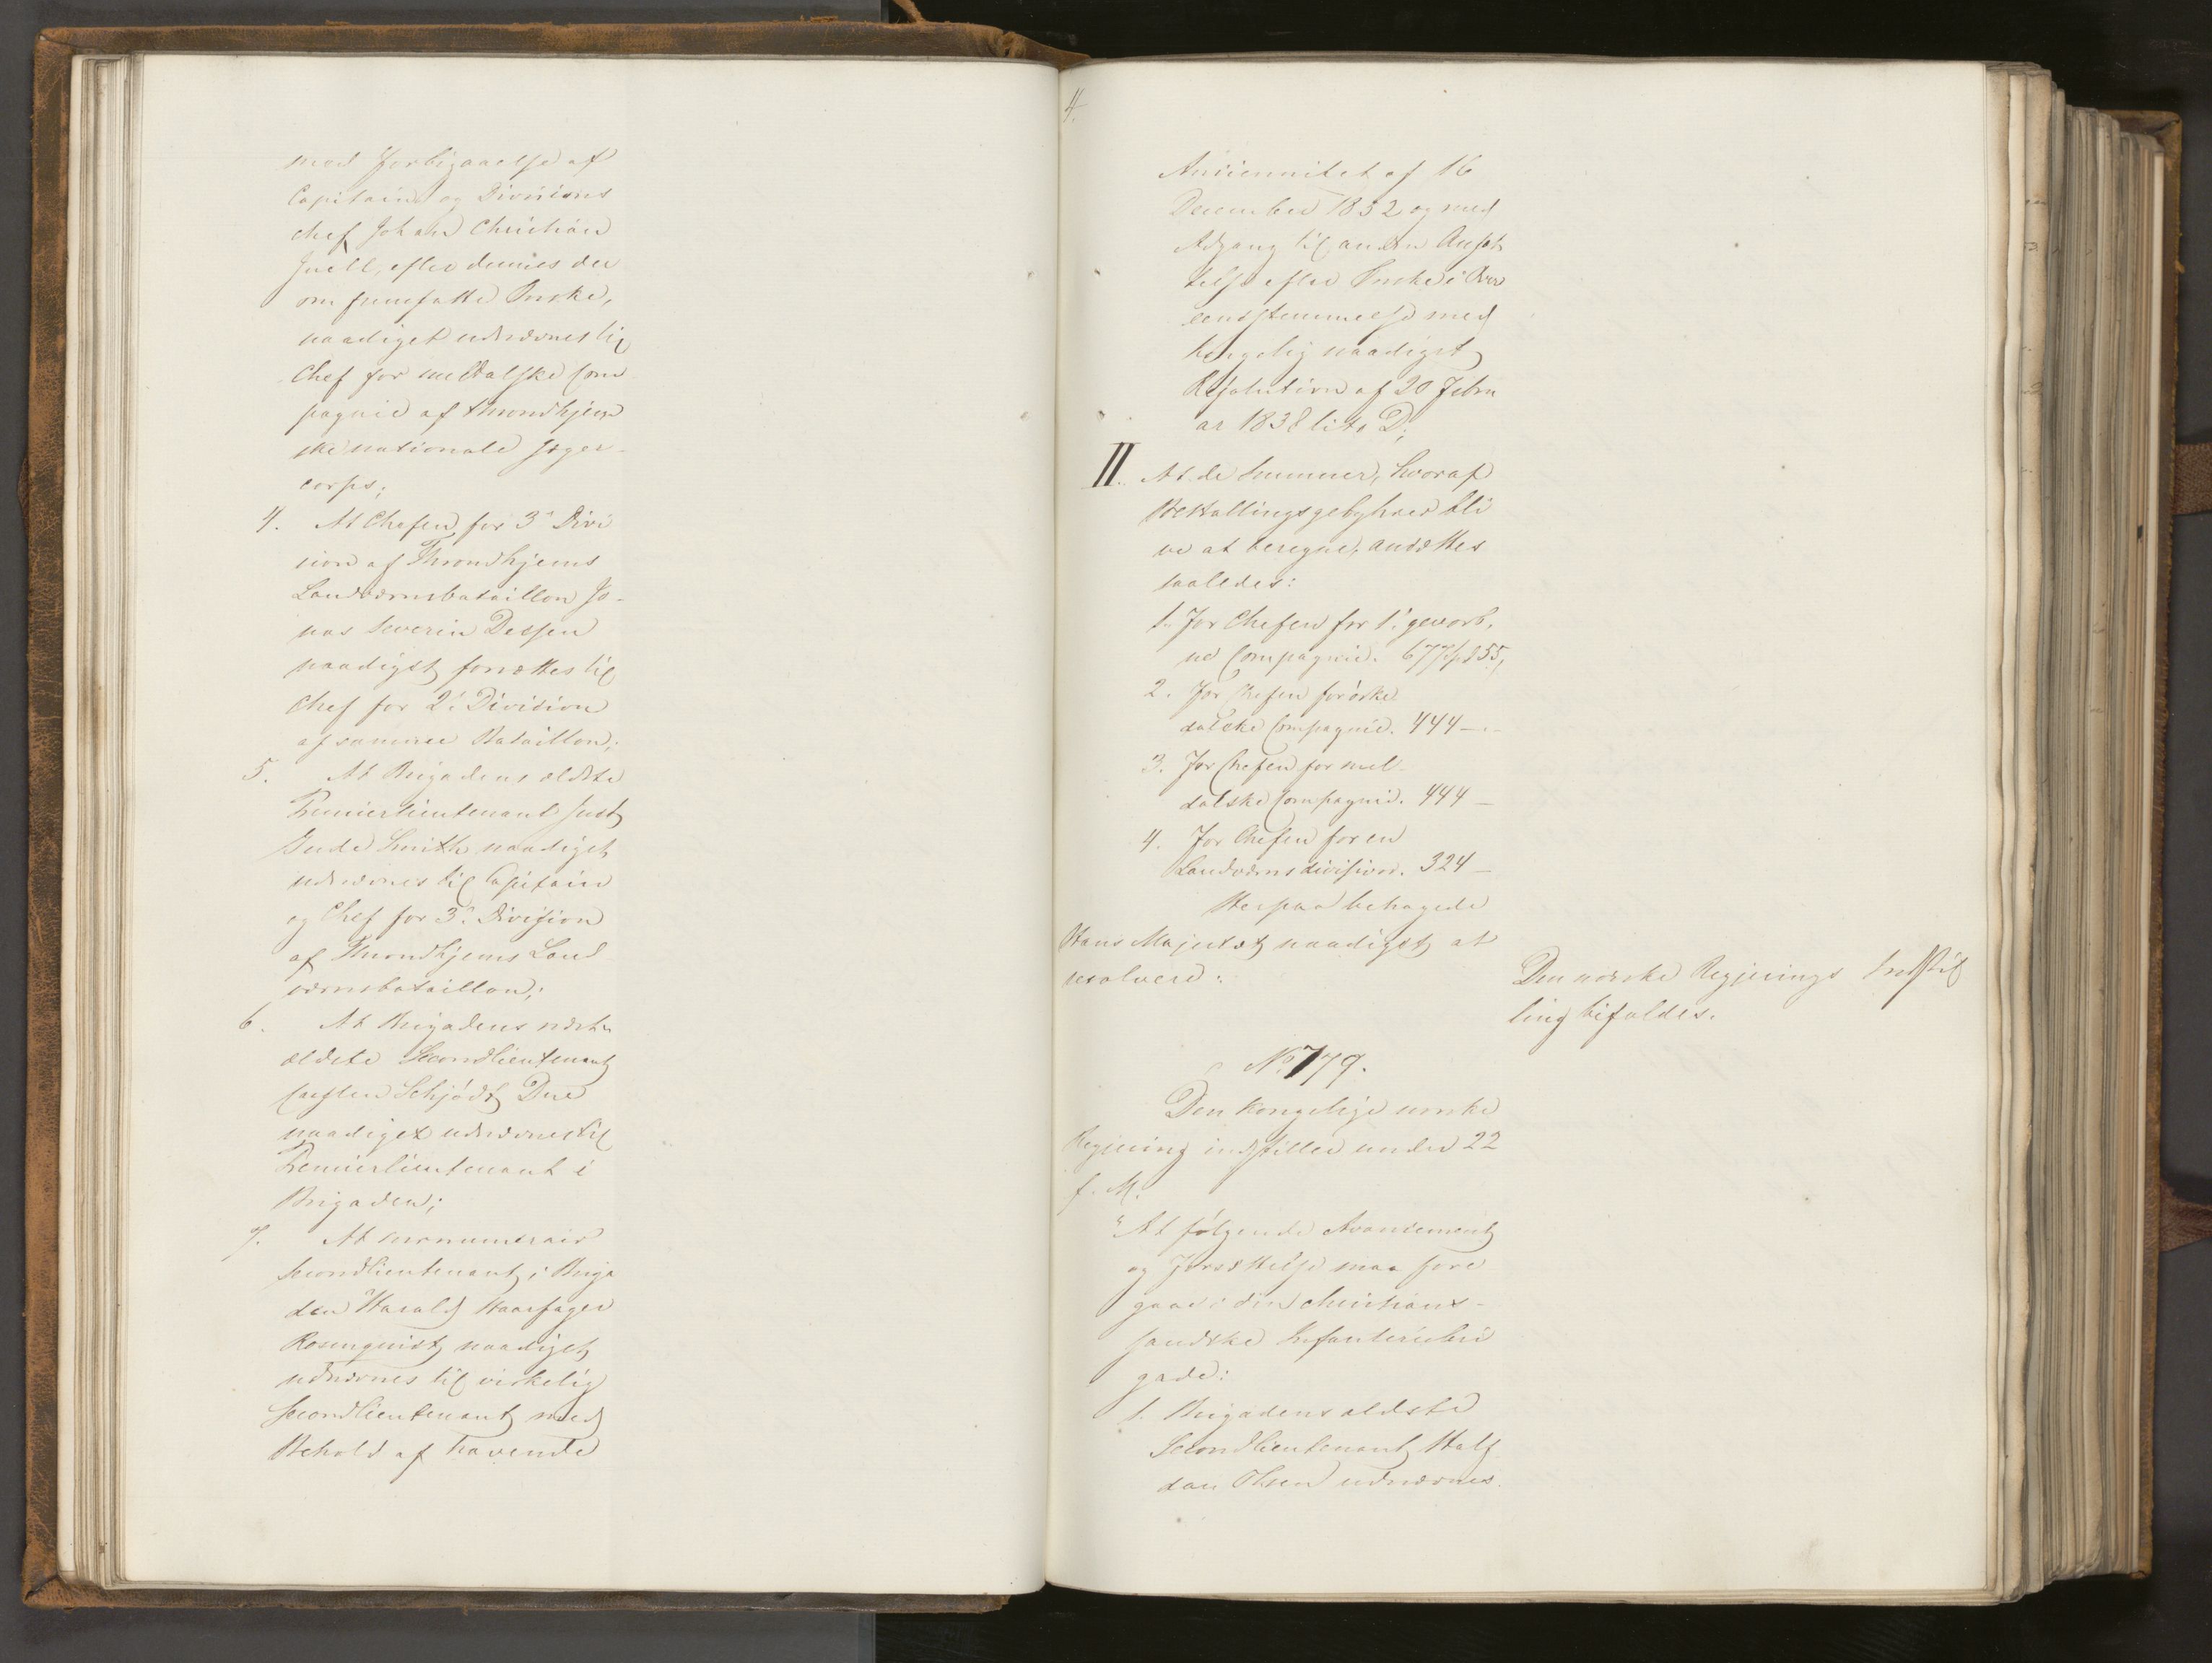 med Forbigaaelse af
Capitain og Divisions
chef Johan Christian
Juell, efter dennes der
om fremsatte Ønske,
naadigst udnævnes til
Chef for meldalske Com
pagnie af throndhjem
ske nationale Jæger-
corps;
4. At Chefen for 3die Divi
sion af Throndhjems
Landværnsbataillon Jo-
nas Severin Dessen
naadigst forsættes til
Chef for 2den Division
af samme Bataillon;
5. At Brigadens ældste
Premierlieutenant Just
Bude Smith naadigst
udnævnes til Capitain
og Chef for 3die Division
af Throndhjems Land
værnsbataillon;
6. At Brigadens næst
ældste Secondlieutenant
Carsten Schjødt Due
naadigst udnævnes til
Premierlieutenant i
Brigaden;
7. At surnumerair
Secondlieutenant i Briga
den Harald Haarfager
Rosenquist naadigst
udnævnes til virkelig
Secondlieutenant med
Behold af havende
4.
Anciennitet af 16
December 1832 og med
Adgang til anden Ansæt
telse efter Ønske i Over
eensstemmelse med
kongelig naadigst
Resolution af 20 Febru
ar 1838 litr. D;
II. At de Summer, hvoraf
Bestallingsgebyhrer bli
ve at beregne, ansættes
saaledes:
1. For Chefen for 1ste gevorb.
ne Compagnie. 677 Spd 55,
2. For Chefen for ørke
dalske Compagnie. 444 - -
3. For Chefen for mel-
dalske Compagnie. 444 -
4. For Chefen for en
Landværnsdivision. 324 -
Herpaa behagede
Hans Majestæt naadigst at
resolvere:
Den norske Regjerings Indstil
ling bifaldes.
No 779.
Den kongelige norske
Regjering indstiller under 22
f. M.
"At følgende Avancement
og Forsættelse maa fore
gaae i den christians-
sandske Infanteribri
gade:
1. Brigadens ældste
Secondlieutenant Half
dan Olsen udnævnes